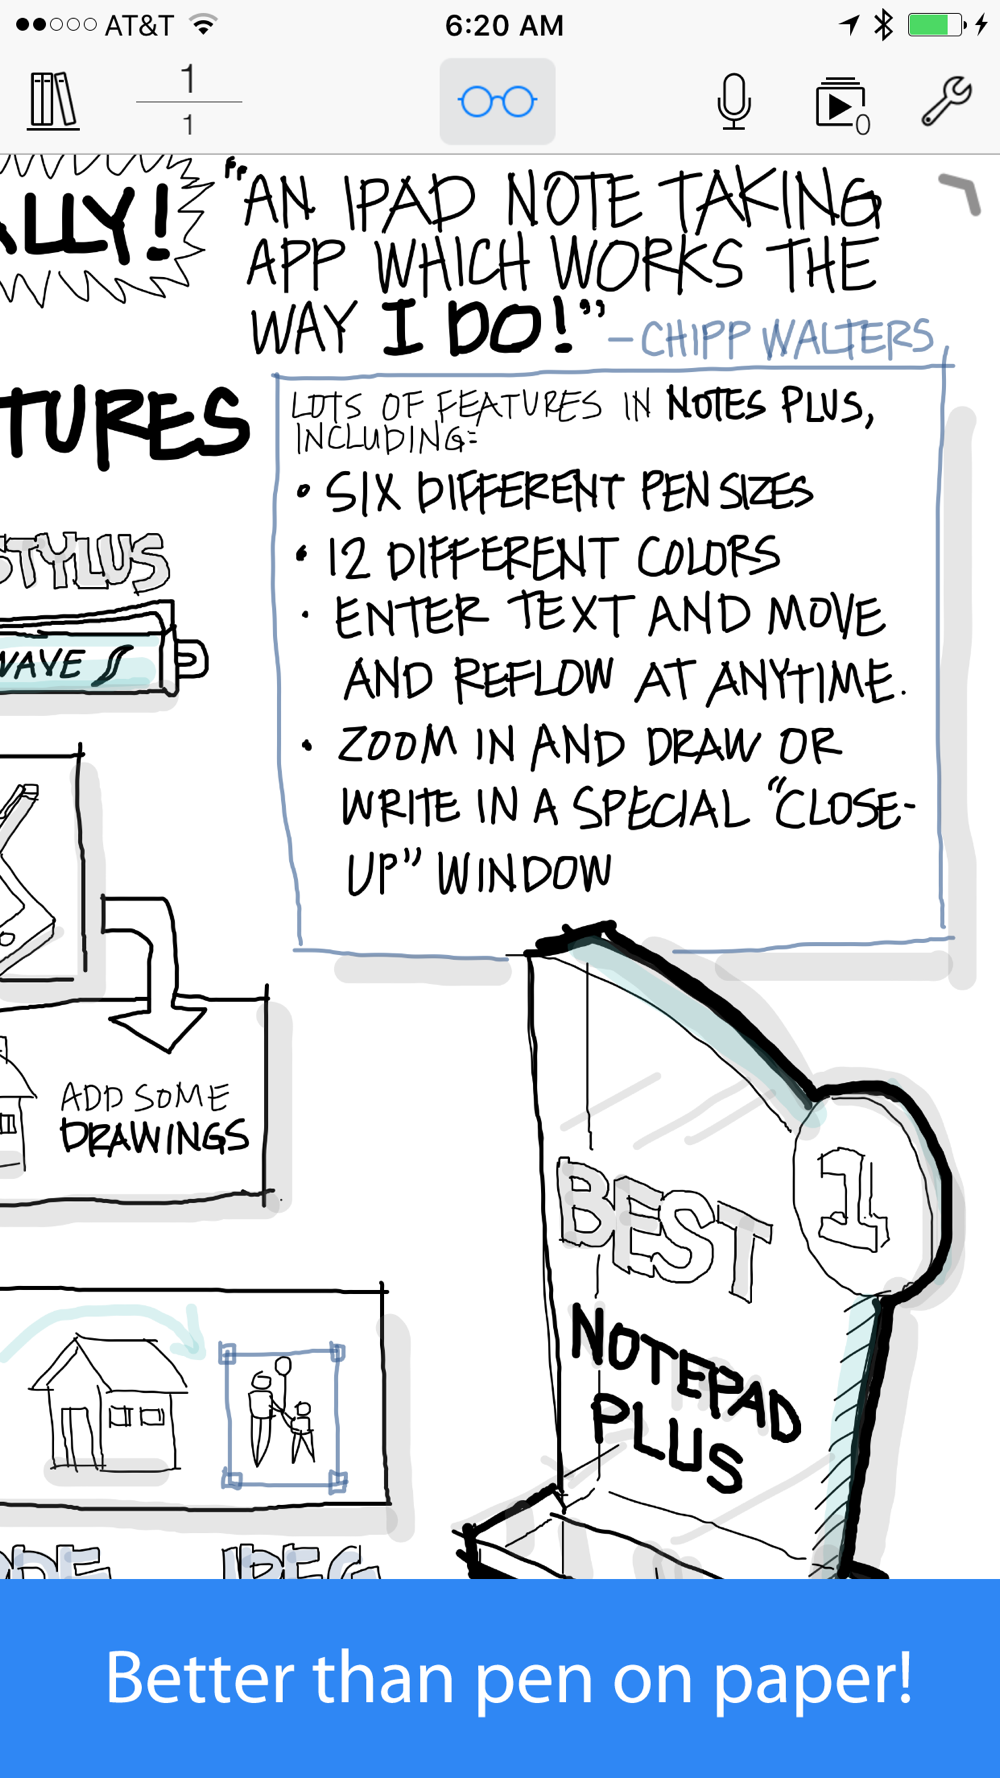 AT&T 6:20 AM
1
1
0
ALLY!
"AN IPAD NOTE TAKING
APP WHICH WORKS THE
WAY I DO!"
-CHIPP WALTERS
TURES
LOTS OF FEATURES IN NOTES PLUS,
INCLUDING:
• SIX DIFFERENT PEN SIZES
• 12 DIFFERENT COLORS
• ENTER TEXT AND MOVE
AND REFLOW AT ANYTIME.
• ZOOM IN AND DRAW OR
WRITE IN A SPECIAL "CLOSE-
UP" WINDOW
STYLUS
WAVE
ADD SOME
DRAWINGS
1
BEST
NOTEPAD
PLUS
JPEG
Better than pen on paper!